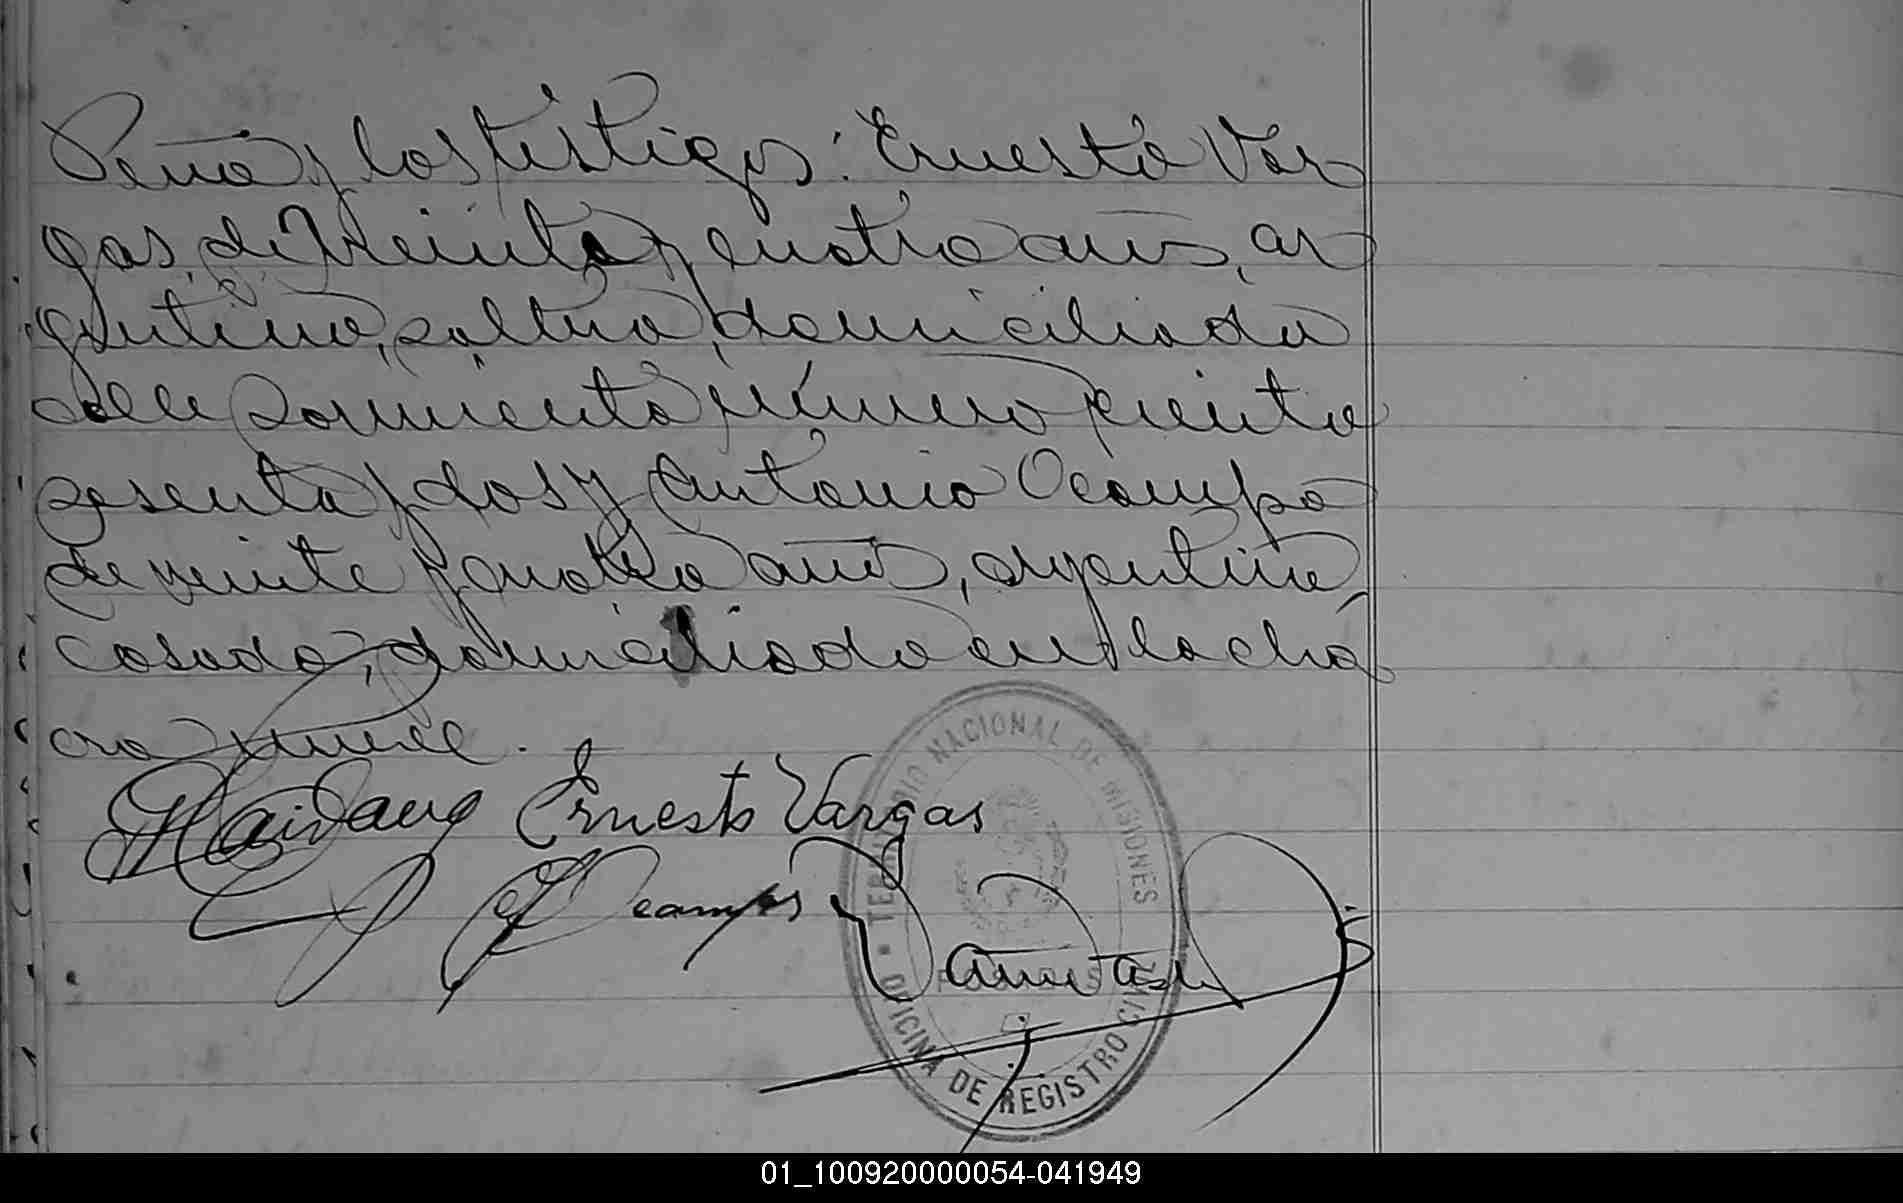 Peña y los testigos: Ernesto Var
gas, de treinta y cuatro años, ar
gentino, soltero, domiciliado
calle Sarmiento número ciento
sesenta y dos y Antonio Ocampo
de veinte y cuatro años, argentino,
casado, domiciliado en la chá
cra nueve.
Ernesto Vargas
Ocampo
TERRITORIO NACIONAL DE MISIONES
OFICINA DE REGISTRO CIVIL
01_100920000054-041949